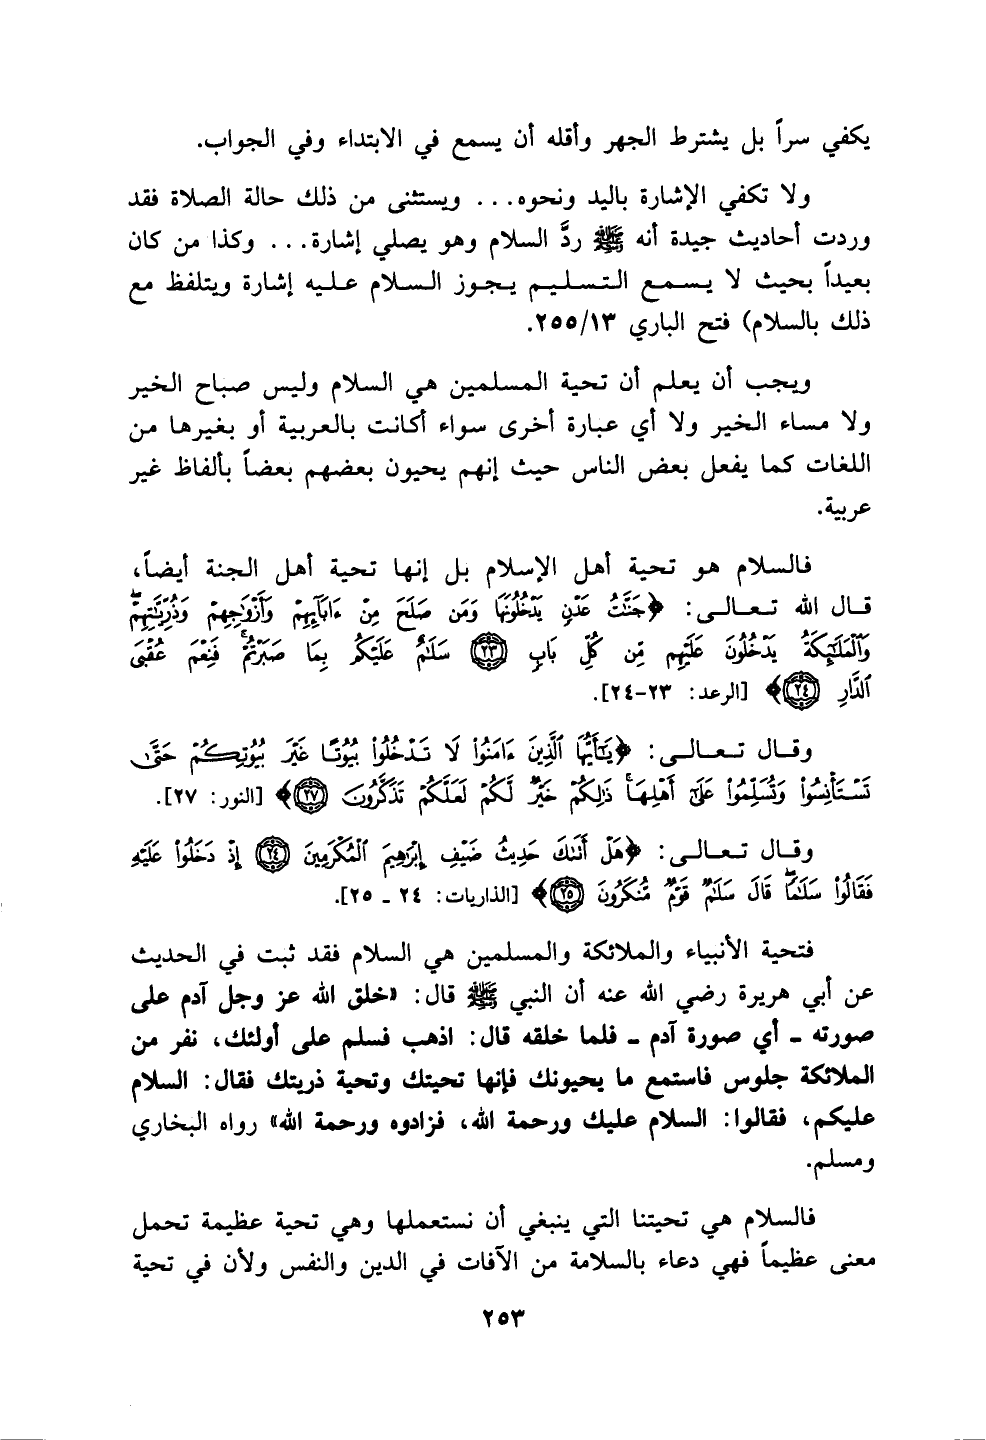 يكفي سراً بل يشترط الجهر وأقله أن يسمع في الابتداء وفي الجواب.
ولا تكفي الإشارة باليد ونحوه... ويستثنى من ذلك حالة الصلاة فقد
وردت أحاديث جيدة أنه ﷺ ردَّ السلام وهو يصلي إشارة... وكذا من كان
بعيداً بحيث لا يسمع التسليم يجوز السلام عليه إشارة ويتلفظ مع
ذلك بالسلام) فتح الباري ٢٥٥/١٣.
ويجب أن يعلم أن تحية المسلمين هي السلام وليس صباح الخير
ولا مساء الخير ولا أي عبارة أخرى سواء أكانت بالعربية أو بغيرها من
اللغات كما يفعل بعض الناس حيث إنهم يحيون بعضهم بعضاً بألفاظ غير
عربية.
فالسلام هو تحية أهل الإسلام بل إنها تحية أهل الجنة أيضاً،
قال الله تعالى: ﴿جَنَّٰتُ عَدْنٍ يَدْخُلُونَهَا وَمَن صَلَحَ مِنْ ءَابَآئِهِمْ وَأَزْوَٰجِهِمْ وَذُرِّيَّٰتِهِمْۖ
وَٱلْمَلَٰٓئِكَةُ يَدْخُلُونَ عَلَيْهِم مِّن كُلِّ بَابٍ ٢٣ سَلَٰمٌ عَلَيْكُم بِمَا صَبَرْتُمْۚ فَنِعْمَ عُقْبَى
ٱلدَّارِ ٢٤﴾ [الرعد: ٢٣-٢٤].
وقال تعالى: ﴿يَٰٓأَيُّهَا ٱلَّذِينَ ءَامَنُوا۟ لَا تَدْخُلُوا۟ بُيُوتًا غَيْرَ بُيُوتِكُمْ حَتَّىٰ
تَسْتَأْنِسُوا۟ وَتُسَلِّمُوا۟ عَلَىٰٓ أَهْلِهَاۚ ذَٰلِكُمْ خَيْرٌ لَّكُمْ لَعَلَّكُمْ تَذَكَّرُونَ ٢٧﴾ [النور: ٢٧].
وقال تعالى: ﴿هَلْ أَتَىٰكَ حَدِيثُ ضَيْفِ إِبْرَٰهِيمَ ٱلْمُكْرَمِينَ ٢٤ إِذْ دَخَلُوا۟ عَلَيْهِ
فَقَالُوا۟ سَلَٰمًاۖ قَالَ سَلَٰمٌ قَوْمٌ مُّنكَرُونَ ٢٥﴾ [الذاريات: ٢٤ - ٢٥].
فتحية الأنبياء والملائكة والمسلمين هي السلام فقد ثبت في الحديث
عن أبي هريرة رضي الله عنه أن النبي ﷺ قال: «خلق الله عز وجل آدم على
صورته - أي صورة آدم - فلما خلقه قال: اذهب فسلم على أولئك، نفر من
الملائكة جلوس فاستمع ما يحيونك فإنها تحيتك وتحية ذريتك فقال: السلام
عليكم، فقالوا: السلام عليك ورحمة الله، فزادوه ورحمة الله» رواه البخاري
ومسلم.
فالسلام هي تحيتنا التي ينبغي أن نستعملها وهي تحية عظيمة تحمل
معنى عظيماً فهي دعاء بالسلامة من الآفات في الدين والنفس ولأن في تحية
٢٥٣